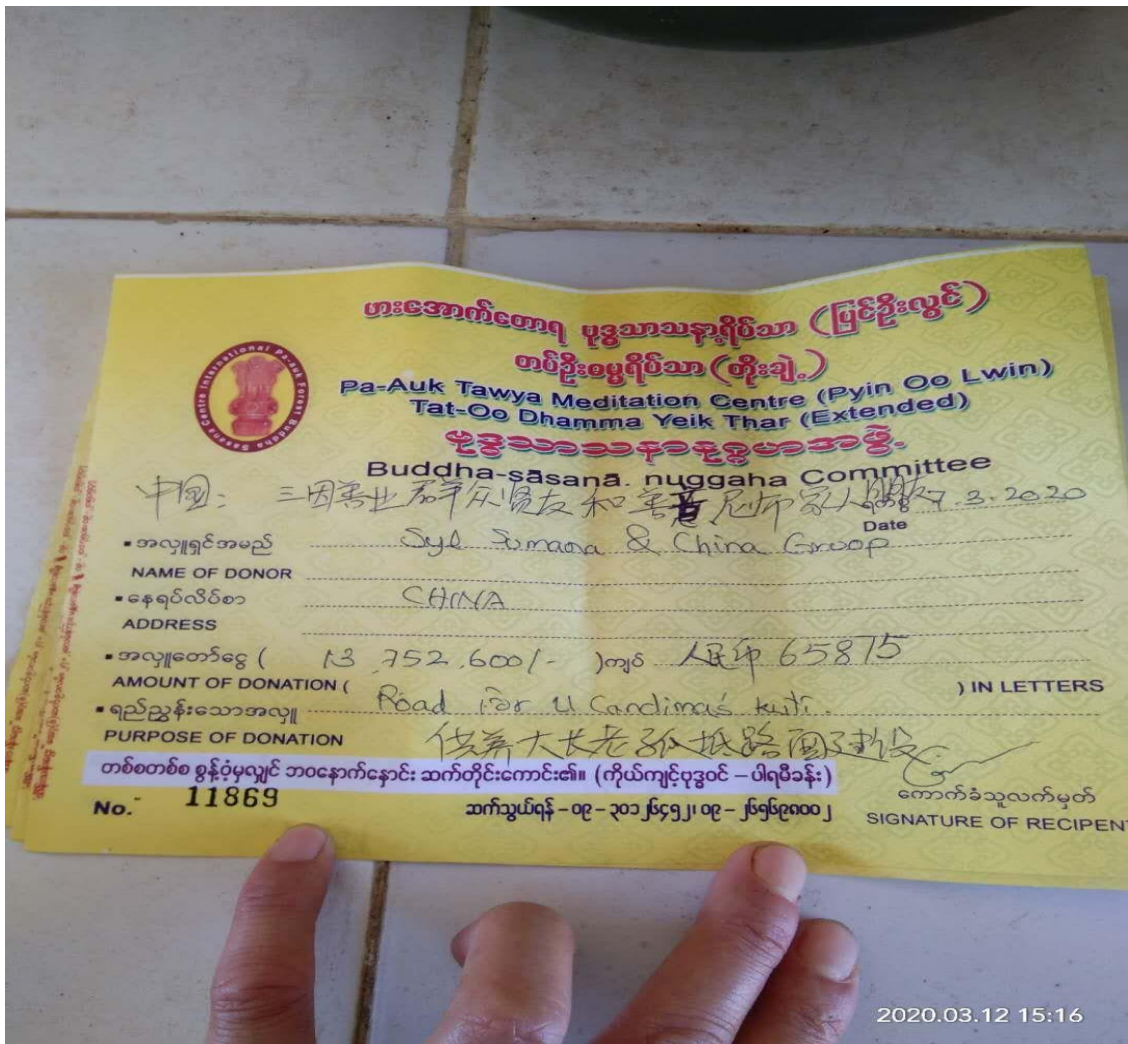 ဖားအောက်တောရ ဗုဒ္ဓသာသနာ့ရိပ်သာ (ပြင်ဦးလွင်)
တပ်ဦးဓမ္မရိပ်သာ (တိုးချဲ့)
Pa-Auk Tawya Meditation Centre (Pyin Oo Lwin)
Tat-Oo Dhamma Yeik Thar (Extended)
ဗုဒ္ဓသာသနာနုဂ္ဂဟအဖွဲ့
Buddha-sāsanā. nuggaha Committee
中国: 三因善业群众贤友和善意尼师家人朋友 7.3.2020
Date
အလှူရှင်အမည် Syl Sumana & China Group
NAME OF DONOR
နေရပ်လိပ်စာ CHINA
ADDRESS
အလှူတော်ငွေ ( 13,752,600/- )ကျပ် 人民币 65875
AMOUNT OF DONATION ( ) IN LETTERS
ရည်ညွှန်းသောအလှူ Road for U Candima's kuti.
PURPOSE OF DONATION 供养大长老孤抵路面建设
တစ်စတစ်စ စွန့်ပုံ့မှလျှင် ဘဝနောက်နောင်း ဆက်တိုင်းကောင်း၏။ (ကိုယ်ကျင့်ဗုဒ္ဓဝင် – ပါရမီခန်း)
ကောက်ခံသူလက်မှတ်
No. 11869 ဆက်သွယ်ရန် – ၀၉ – ၃၀၁၂၆၄၅၂၊ ၀၉ – ၂၆၅၆၉၈၀၀၂
SIGNATURE OF RECIPENT
2020.03.12 15:16